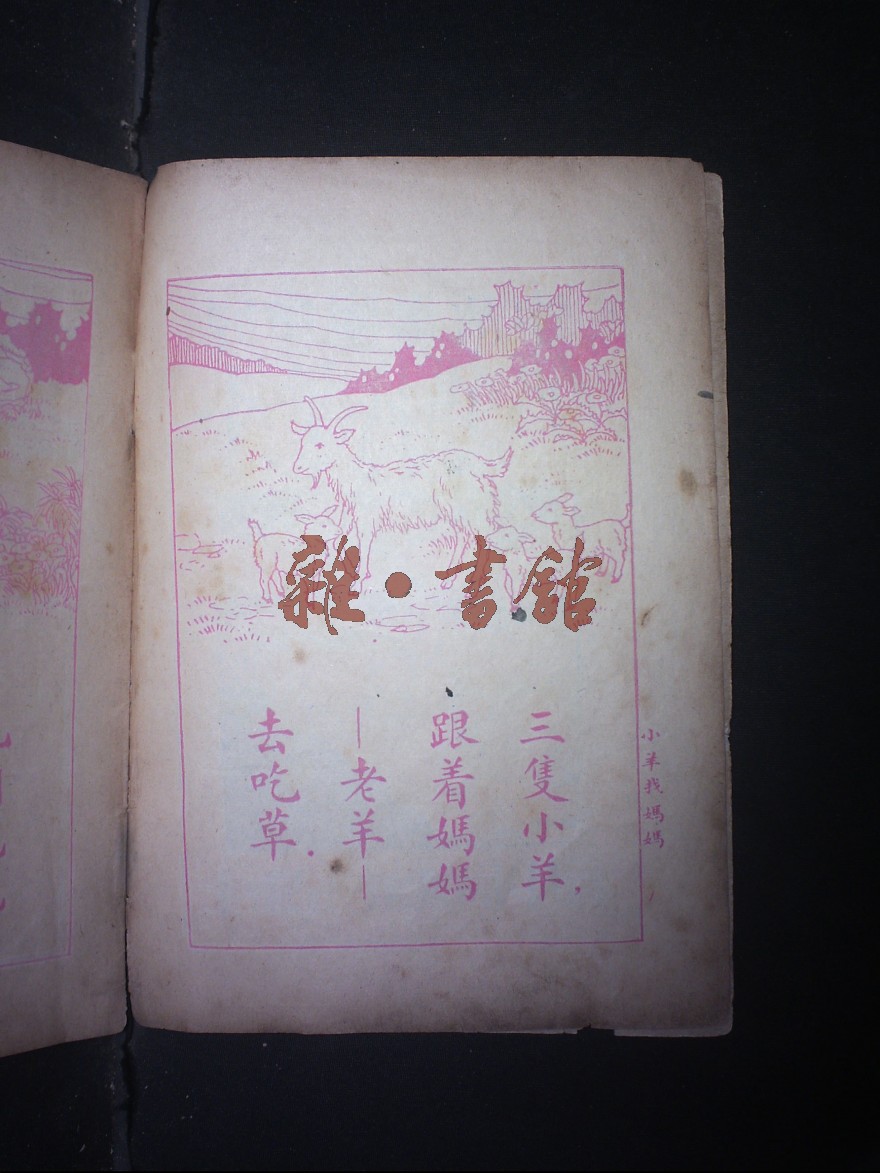 三隻小羊，
跟着媽媽
—老羊—
去吃草．
小羊找媽媽
雜·書館